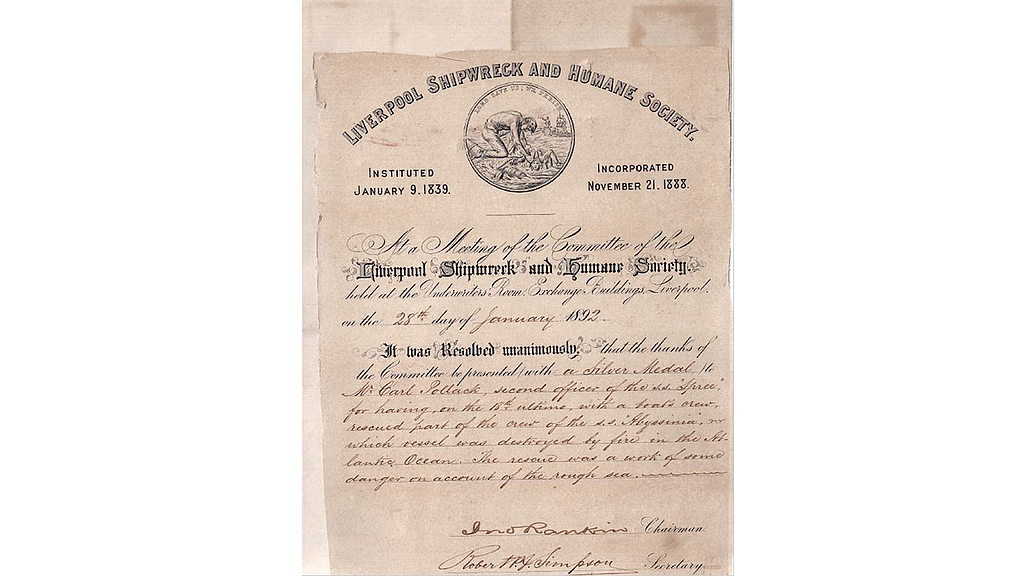 LIVERPOOL SHIPWRECK AND HUMANE SOCIETY.
LORD SAVE US, WE PERISH
INSTITUTED
JANUARY 9. 1839.
INCORPORATED
NOVEMBER 21. 1888.
At a Meeting of the Committee of the
Liverpool Shipwreck and Humane Society.
held at the Underwriters' Room, Exchange Buildings, Liverpool.
on the 28th day of January 1892
It was Resolved unanimously, that the thanks of
the Committee be presented (with a Silver Medal) to
Mr Carl Pollack, second officer of the s.s. 'Spree',
for having, on the 18th ultimo, with a boat's crew,
rescued part of the crew of the s.s. 'Abyssinia',
which vessel was destroyed by fire in the At-
lantic Ocean. The rescue was a work of some
danger on account of the rough sea.
Jno Rankin Chairman
Robert Simpson Secretary